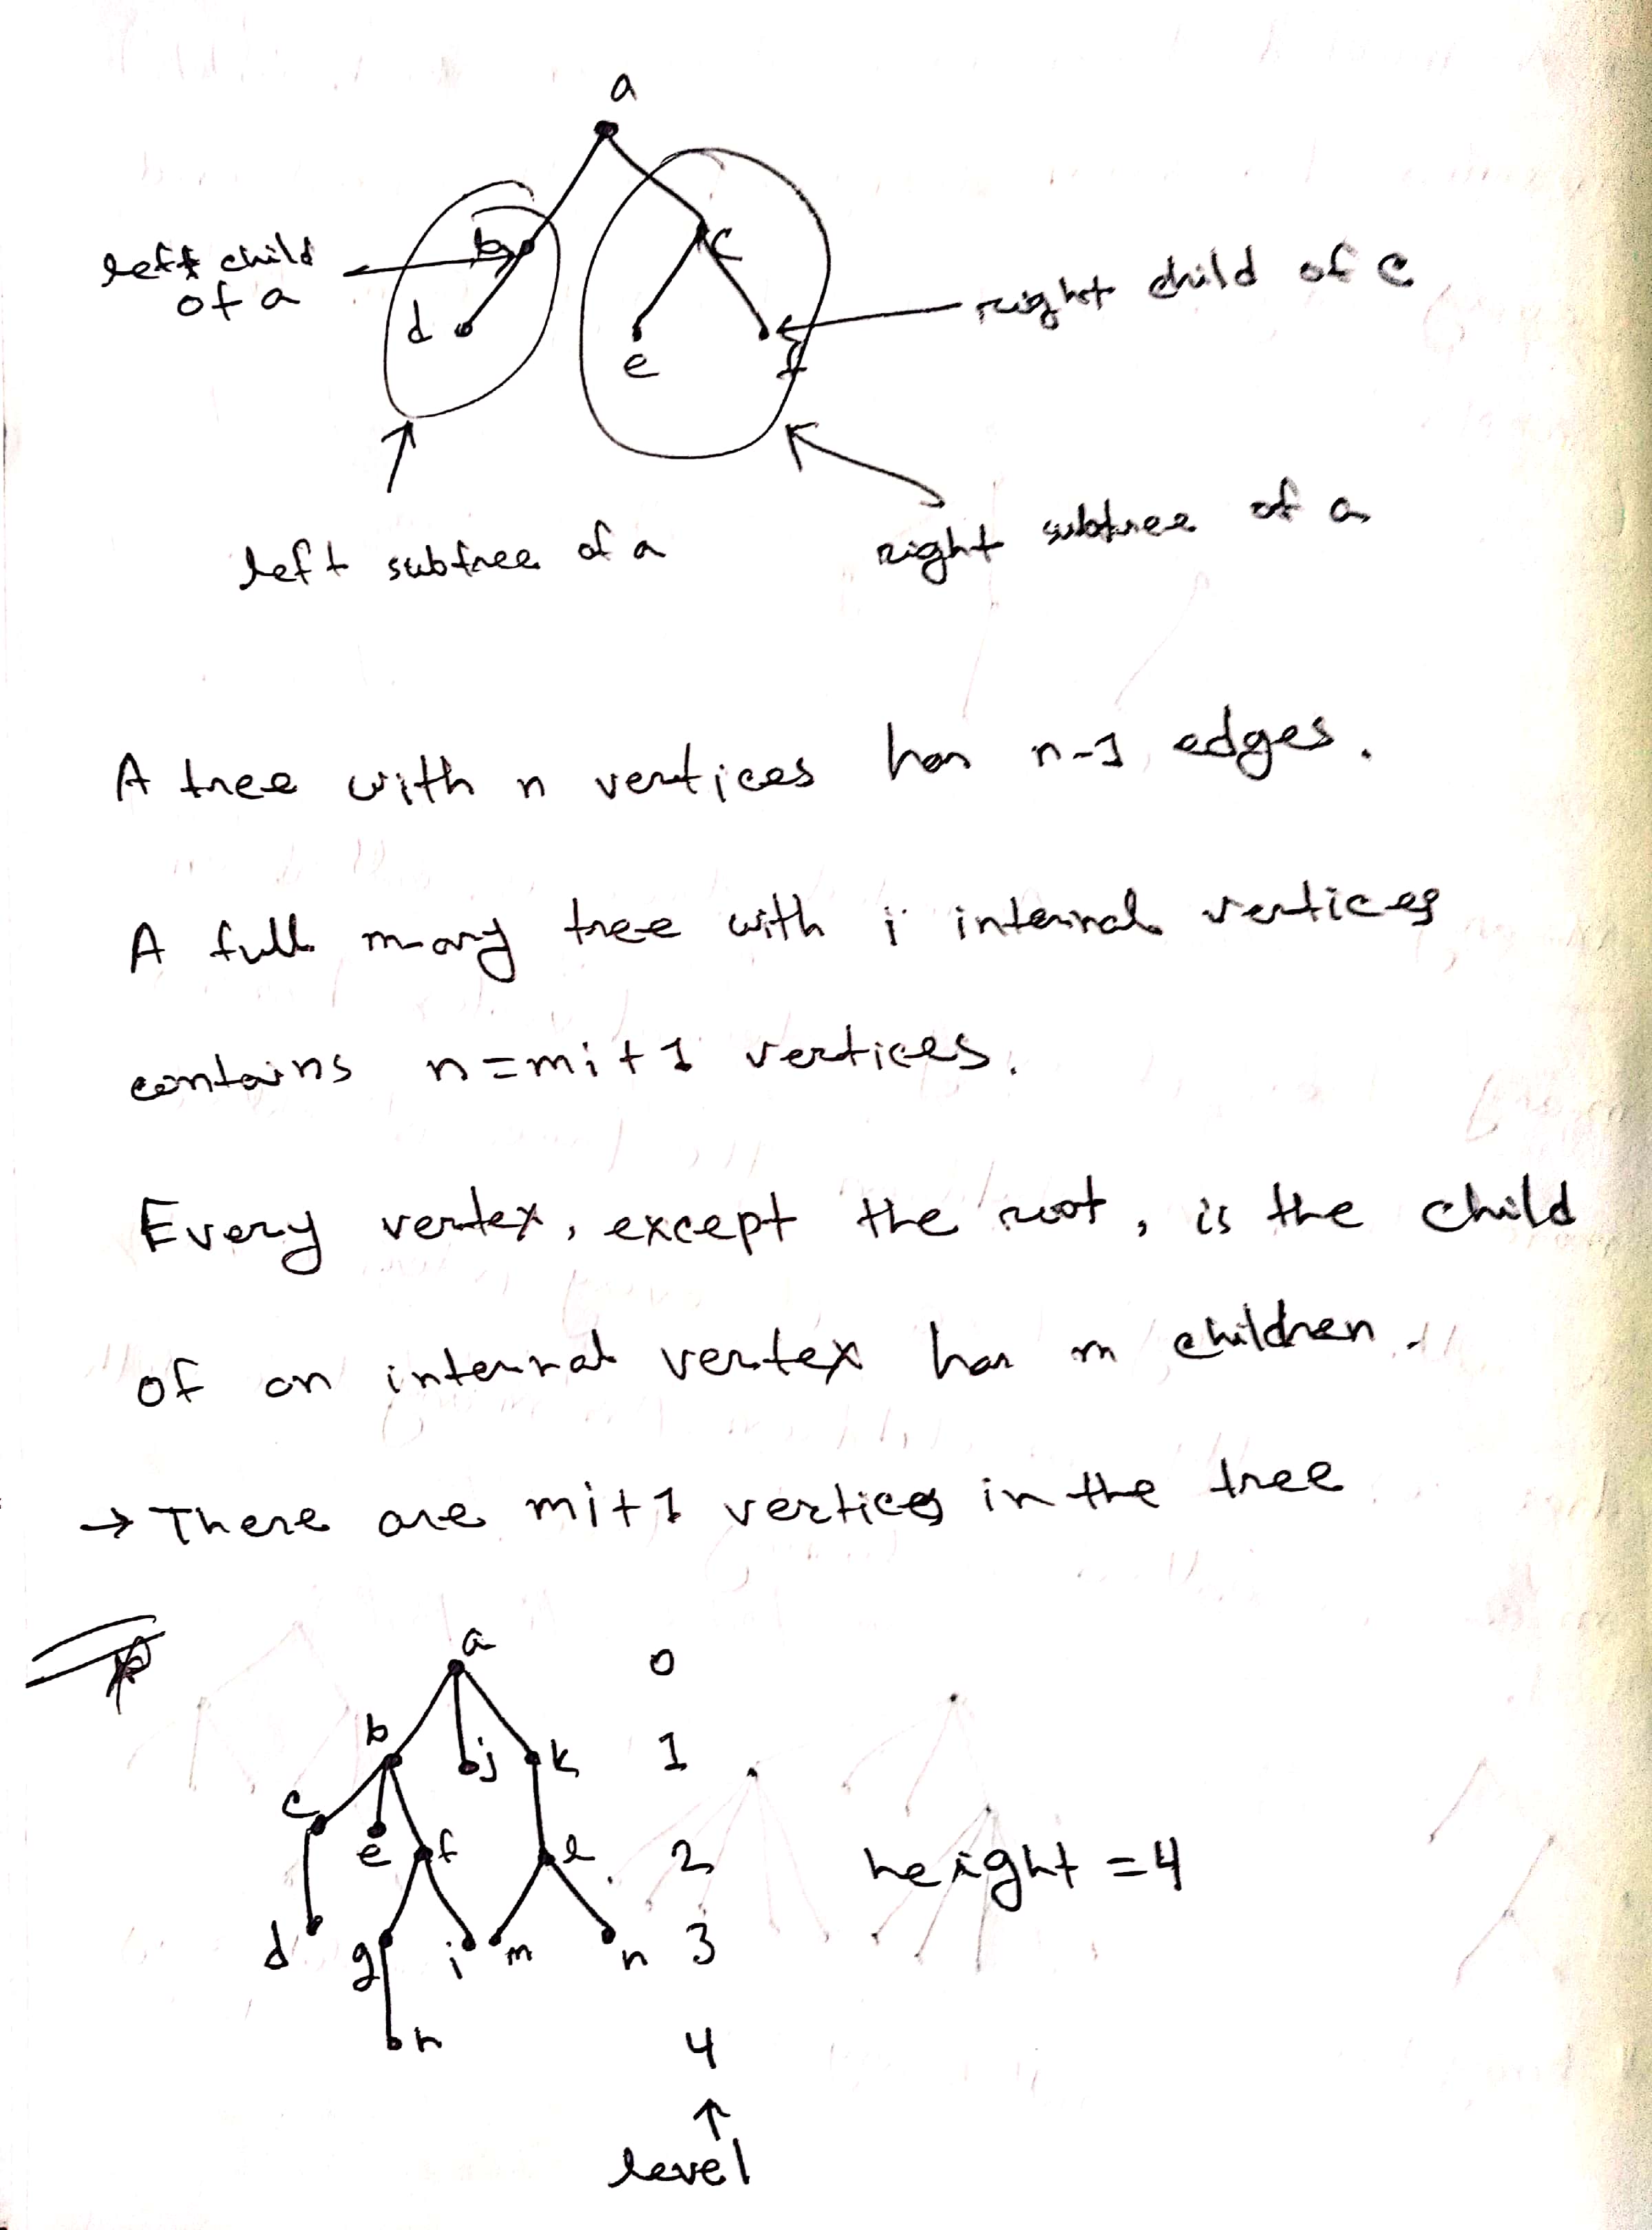 a
b
c
left child
of a
d
e
f
right child of c
left subtree of a
right subtree of a
A tree with n vertices has n-1 edges.
A full m-ary tree with i internal vertices
contains n=mi+1 vertices.
Every vertex, except the root, is the child
of an internal vertex has m children.
→ There are mi+1 vertices in the tree
a 0
b j k 1
c e f l 2
height = 4
d g i m n 3
h 4
↑
level